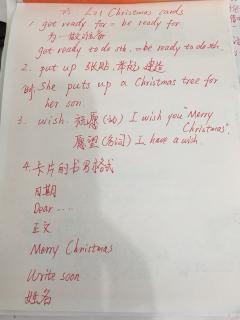 L21 Christmas cards
1. got ready for = be ready for
为…做准备
got ready to do sth. = be ready to do sth.
2. put up 张贴, 举起, 建造
eg. She puts up a Christmas tree for
her son.
3. wish. 祝愿(动) I wish you "Merry
Christmas".
愿望(名词) I have a wish.
4. 卡片的书写格式
日期
Dear ....
正文
Merry Christmas
Write soon
姓名